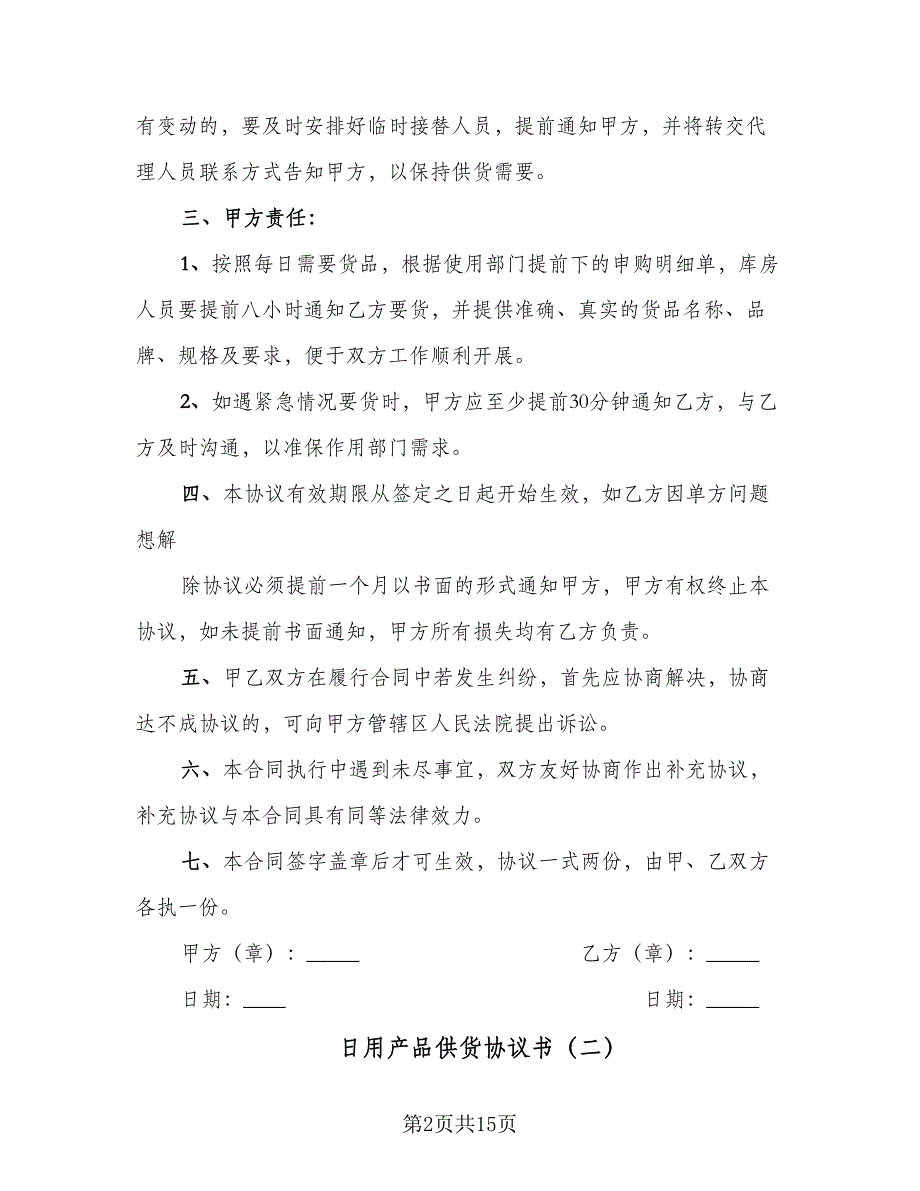 有变动的，要及时安排好临时接替人员，提前通知甲方，并将转交代
理人员联系方式告知甲方，以保持供货需要。
三、甲方责任：
1、按照每日需要货品，根据使用部门提前下的申购明细单，库房
人员要提前八小时通知乙方要货，并提供准确、真实的货品名称、品
牌、规格及要求，便于双方工作顺利开展。
2、如遇紧急情况要货时，甲方应至少提前30分钟通知乙方，与乙
方及时沟通，以准保作用部门需求。
四、本协议有效期限从签定之日起开始生效，如乙方因单方问题
想解
除协议必须提前一个月以书面的形式通知甲方，甲方有权终止本
协议，如未提前书面通知，甲方所有损失均有乙方负责。
五、甲乙双方在履行合同中若发生纠纷，首先应协商解决，协商
达不成协议的，可向甲方管辖区人民法院提出诉讼。
六、本合同执行中遇到未尽事宜，双方友好协商作出补充协议，
补充协议与本合同具有同等法律效力。
七、本合同签字盖章后才可生效，协议一式两份，由甲、乙双方
各执一份。
甲方（章）：_____ 乙方（章）：_____
日期：____ 日期：_____
日用产品供货协议书（二）
第2页共15页